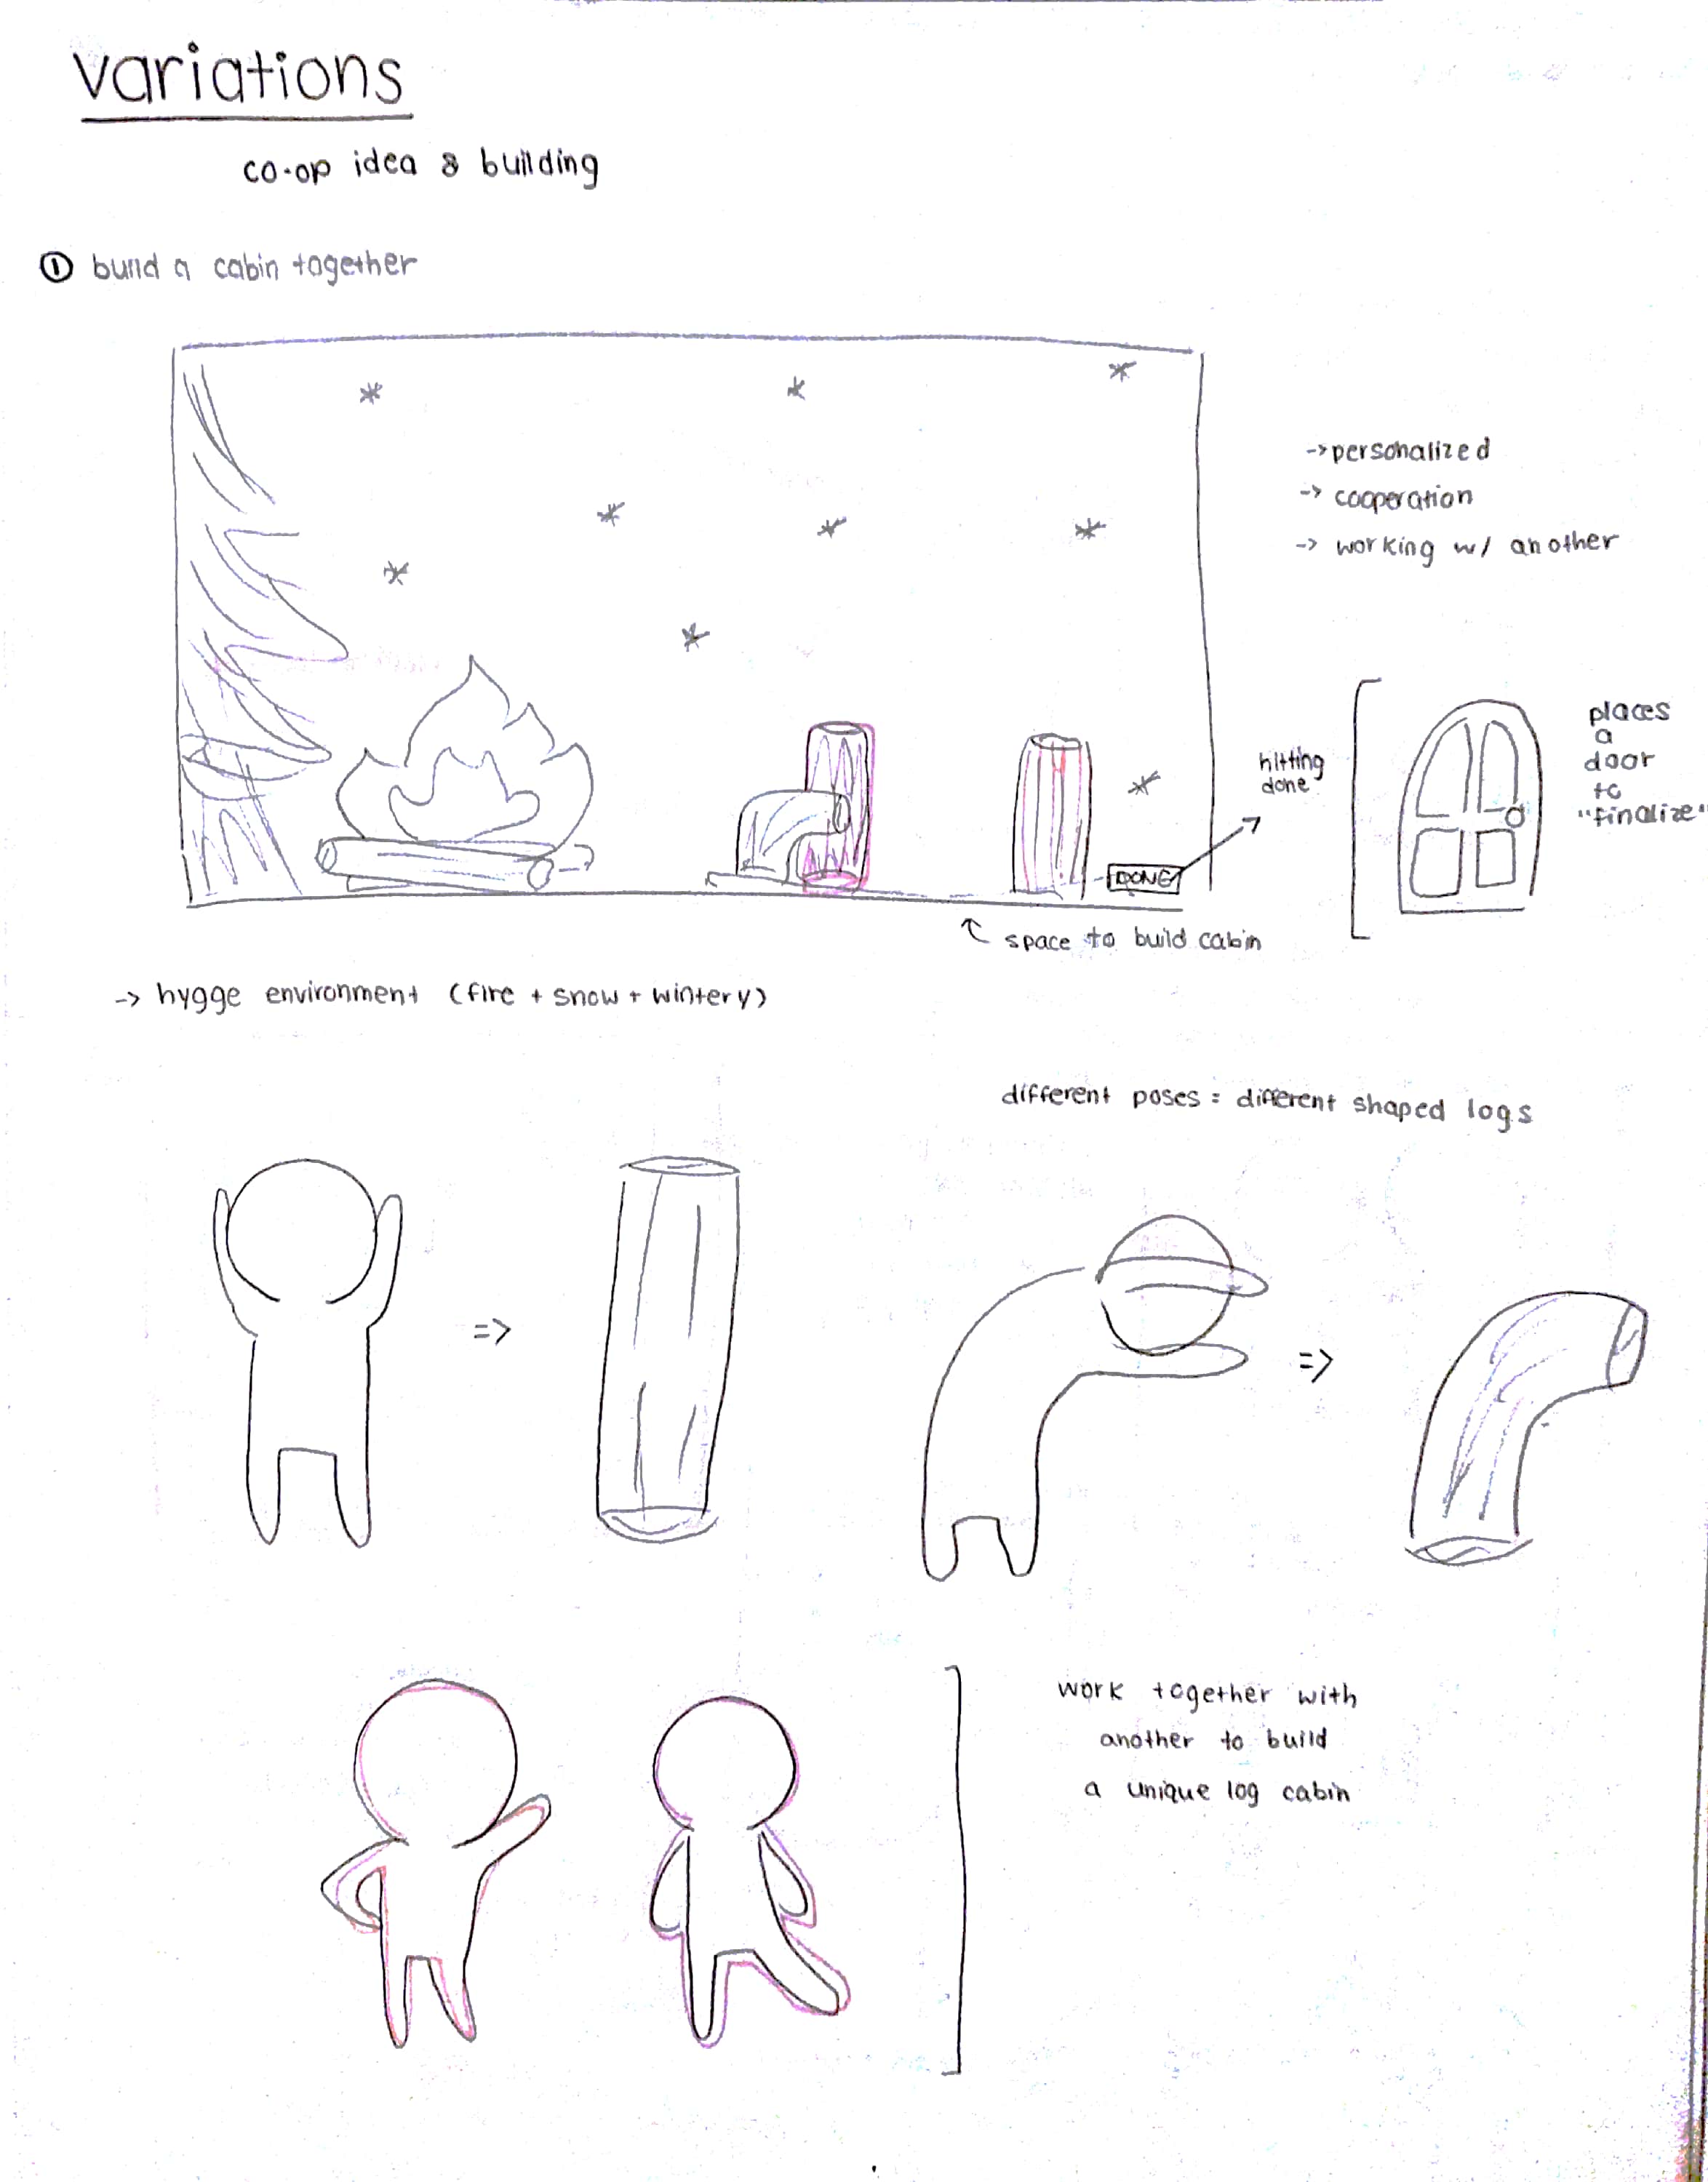 variations
co-op idea & building
① build a cabin together
-> personalized
-> cooperation
-> working w/ another
hitting
done
places
a
door
to
"finalize"
DONE
space to build cabin
-> hygge environment (fire + snow + wintery)
different poses = different shaped logs
=>
=>
work together with
another to build
a unique log cabin